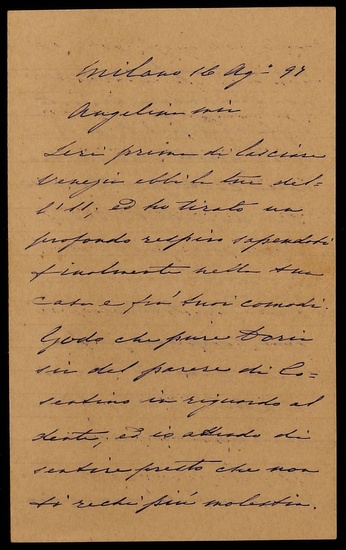 Milano 16 Ag.º 97
Angelina mia
Ieri prima di lasciare
Venezia ebbi la tua del=
l'11; ed ho tirato un
profondo respiro sapendoti
finalmente nella tua
casa e fra' tuoi comodi.
Godo che pure Doria
sia del parere di Co=
sentino in riguardo al
dente, ed io attendo di
sentire presto che non
ti rechi più molestia.